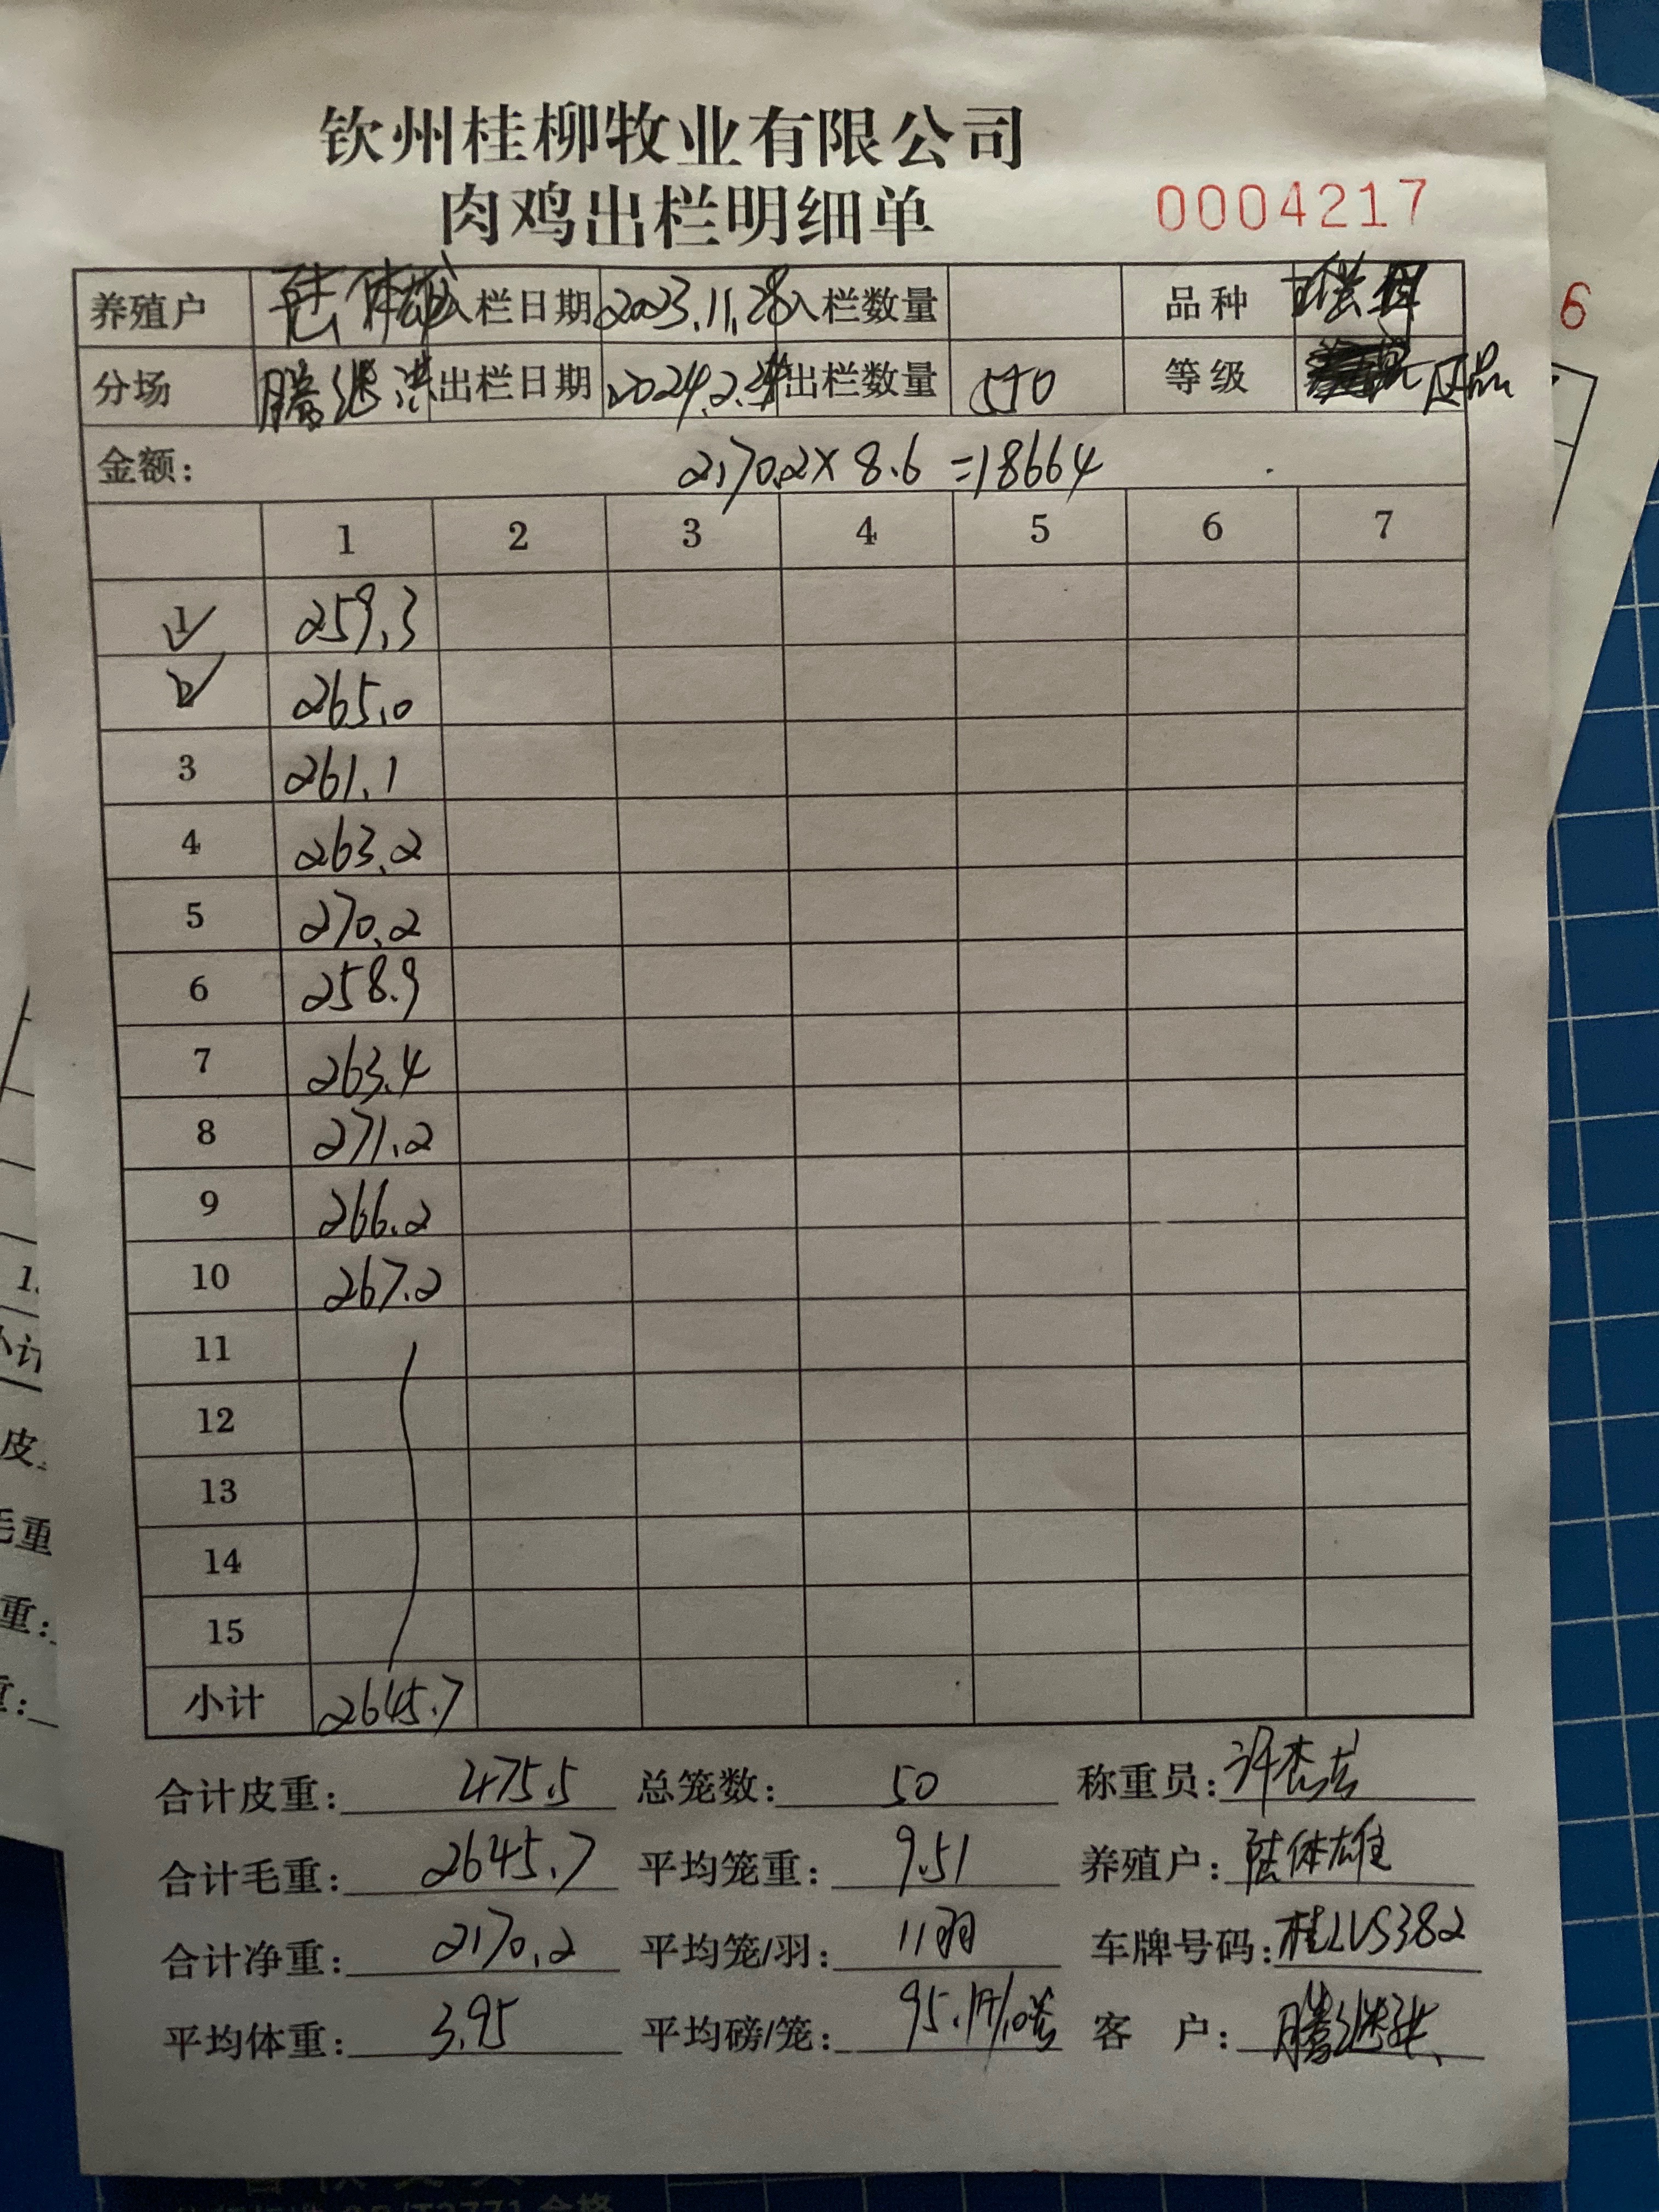 钦州桂柳牧业有限公司
肉鸡出栏明细单 0004217
养殖户 体雄 入栏日期 2023.11.28 入栏数量 品种
分场 腾继洪 出栏日期 2024.2.24 出栏数量 550 等级 正品
金额: 2170.2×8.6=18664
1 2 3 4 5 6 7
1 259.3
2 265.0
3 261.1
4 263.2
5 270.2
6 258.9
7 263.4
8 271.2
9 266.2
10 267.2
11
12
13
14
15
小计 2645.7
合计皮重: 475.5 总笼数: 50 称重员: 许
合计毛重: 2645.7 平均笼重: 9.51 养殖户: 体雄
合计净重: 2170.2 平均笼/羽: 11羽 车牌号码: 桂LVS382
平均体重: 3.95 平均磅/笼: 95.1 客 户: 腾继洪
6
1.
小计
皮
毛重
重:
重: